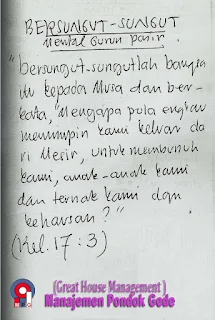 BERSUNGUT-SUNGUT
Mental Gurun Pasir
"bersungut-sungutlah bangsa
itu kepada Musa dan ber-
kata, "Mengapa pula engkau
memimpin kami keluar da
ri Mesir, untuk membunuh
kami, anak-anak kami
dan ternak kami dgn
kehausan?"
(Kel. 17:3)
(Great House Management )
Manajemen Pondok Gede